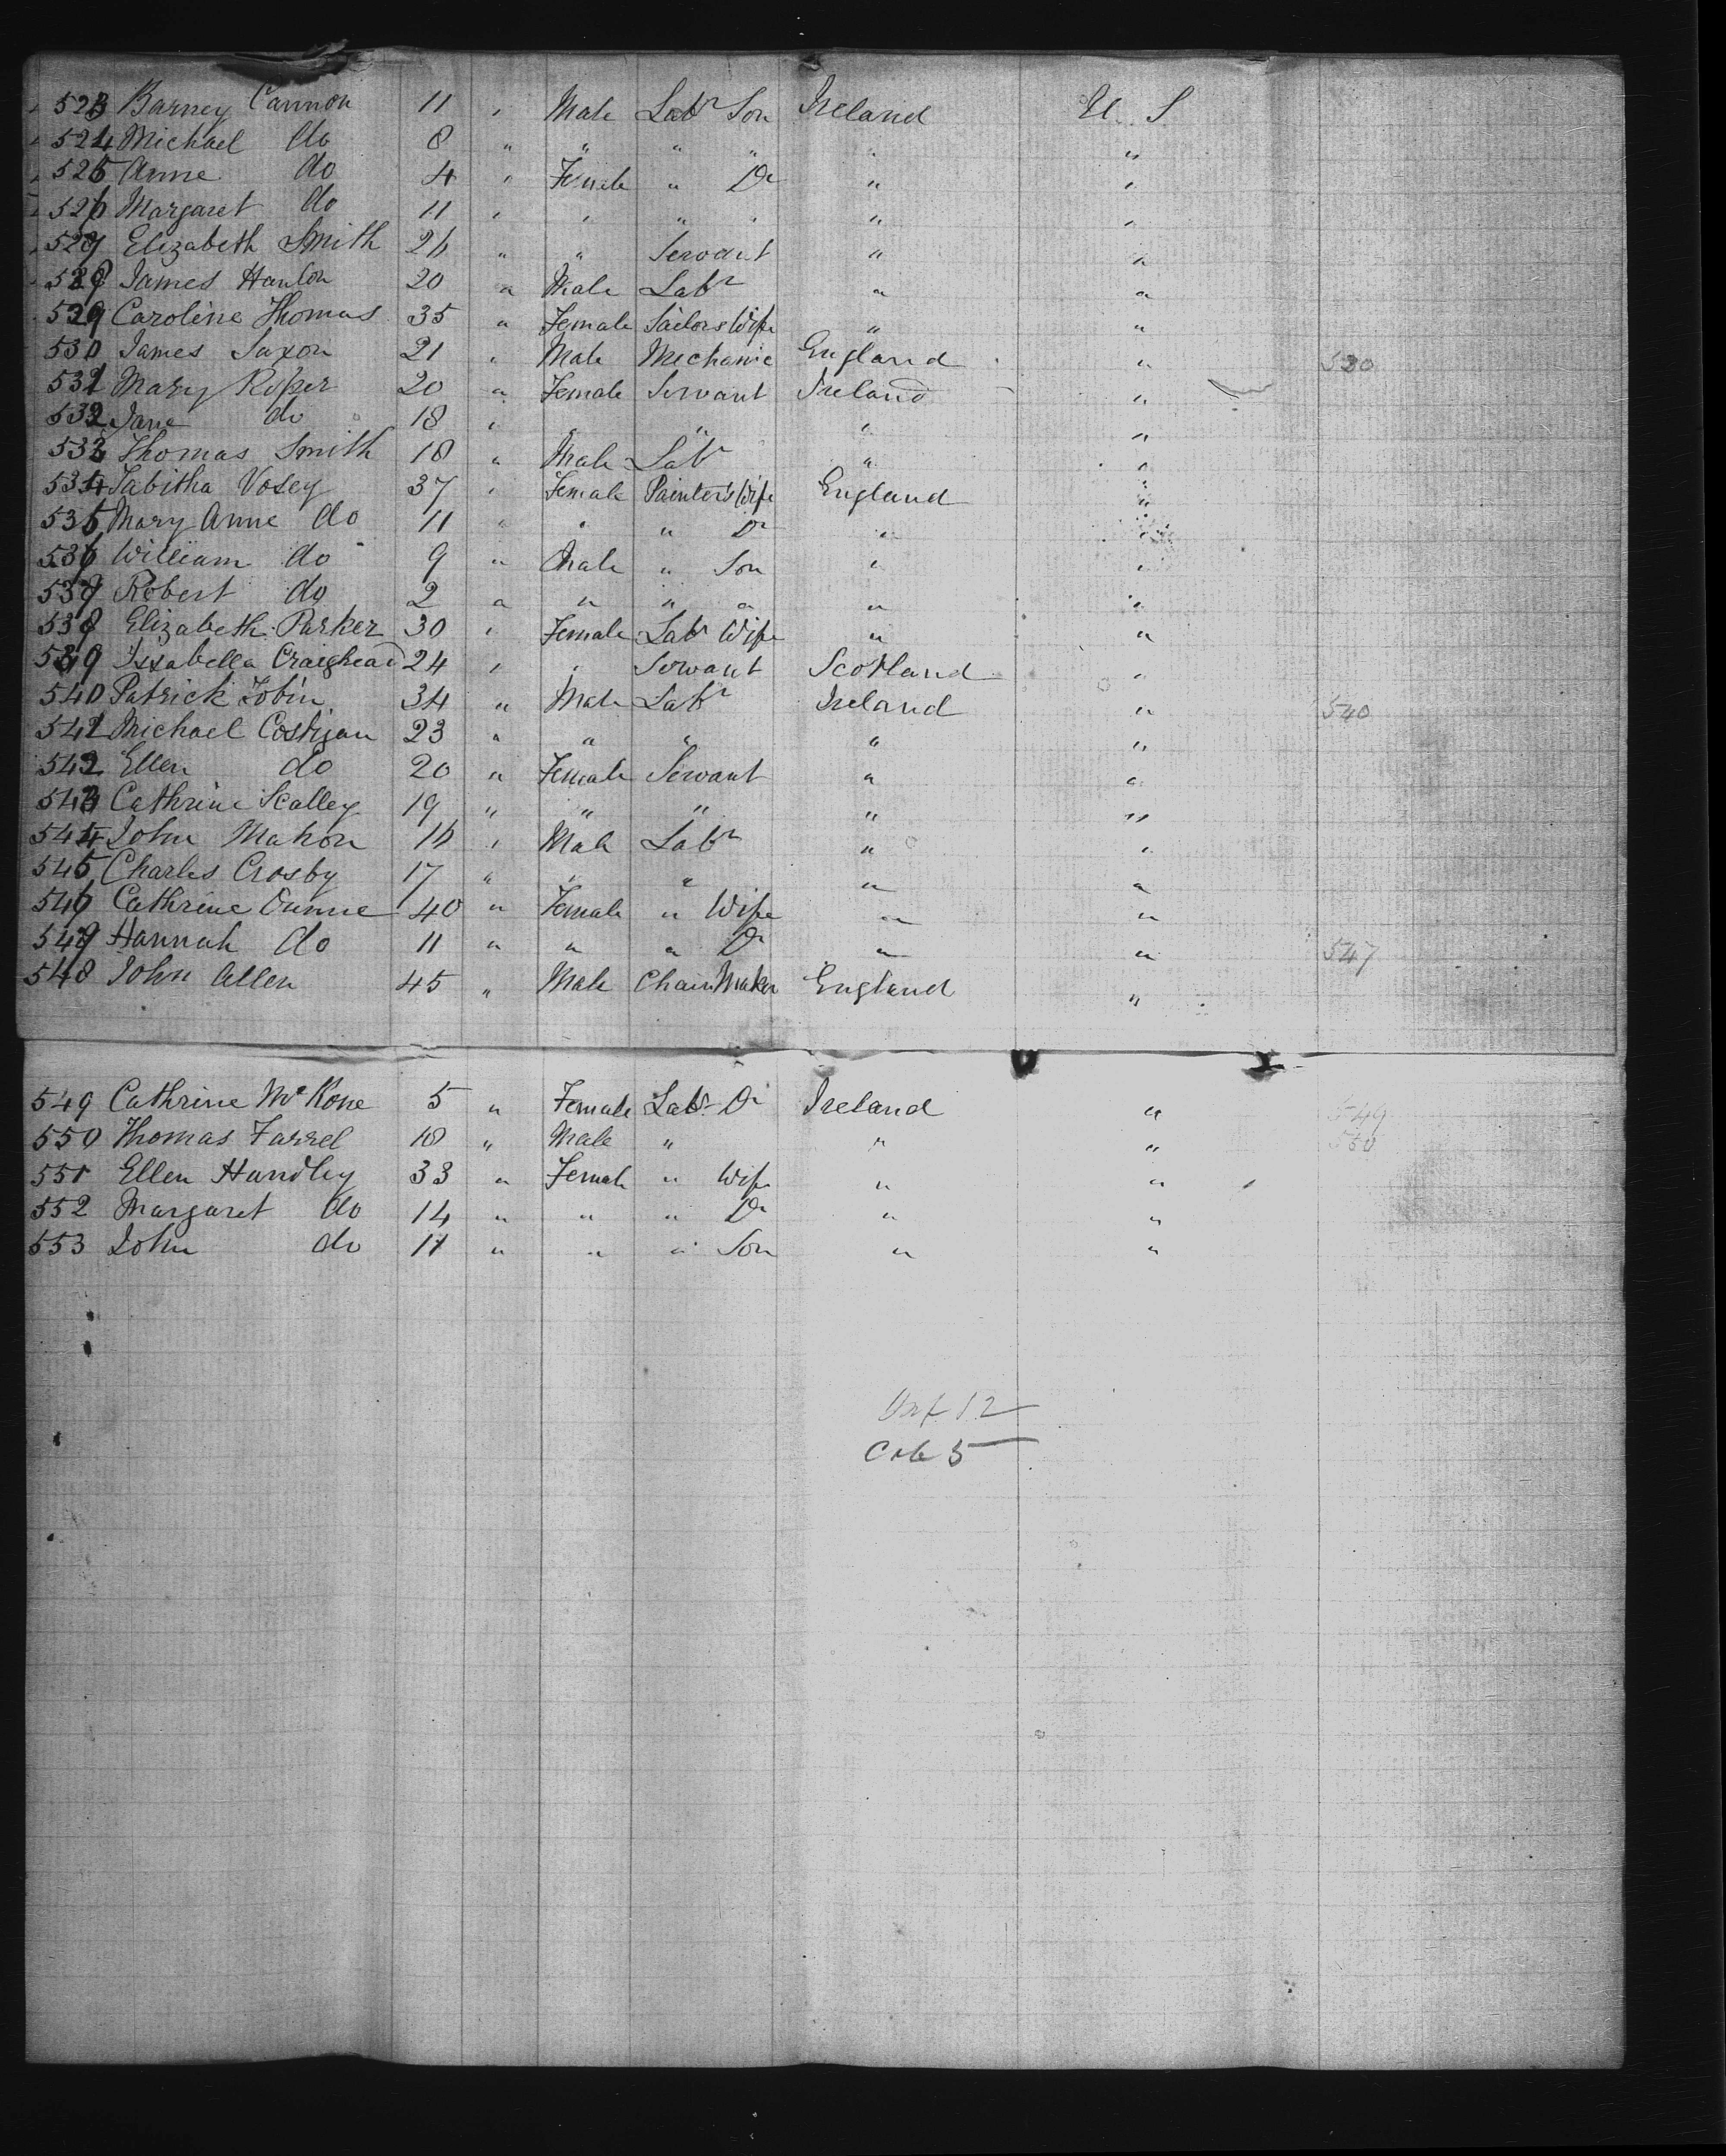 523 Barney Cannon 11 " Male Labr Son Ireland U. S
524 Michael do 8 " " " " " "
525 Anne do 4 " Female " Dr " "
526 Margaret do 11 " " " " " "
527 Elizabeth Smith 26 " " Servant " "
528 James Hanlon 20 " Male Labr " "
529 Caroline Thomas 35 " Female Sailors Wife " "
530 James Saxon 21 " Male Mechanic England " 530
531 Mary Roper 20 " Female Servant Ireland "
532 Jane do 18 " " " " "
533 Thomas Smith 18 " Male Labr " "
534 Tabitha Vosey 37 " Female Painter's Wife England "
535 Mary Anne do 11 " " " Dr " "
536 William do 9 " Male " Son " "
537 Robert do 2 " " " " " "
538 Elizabeth Parker 30 " Female Labr Wife " "
539 Issabella Craighead 24 " " Servant Scotland "
540 Patrick Tobin 34 " Male Labr Ireland " 540
541 Michael Costigan 23 " " " " "
542 Ellen do 20 " Female Servant " "
543 Cathrine Scalley 19 " " " " "
544 John Mahon 16 " Male Labr " "
545 Charles Crosby 17 " " " " "
546 Cathrine Dunne 40 " Female " Wife " "
547 Hannah do 11 " " " Dr " " 547
548 John Allen 45 " Male Chain Maker England "
549 Cathrine McKone 5 " Female Labr Dr Ireland " 549
550 Thomas Farrel 18 " Male " " " 550
551 Ellen Handley 33 " Female " Wife " "
552 Margaret do 14 " " " Dr " "
553 John do 11 " " " Son " "
12
5